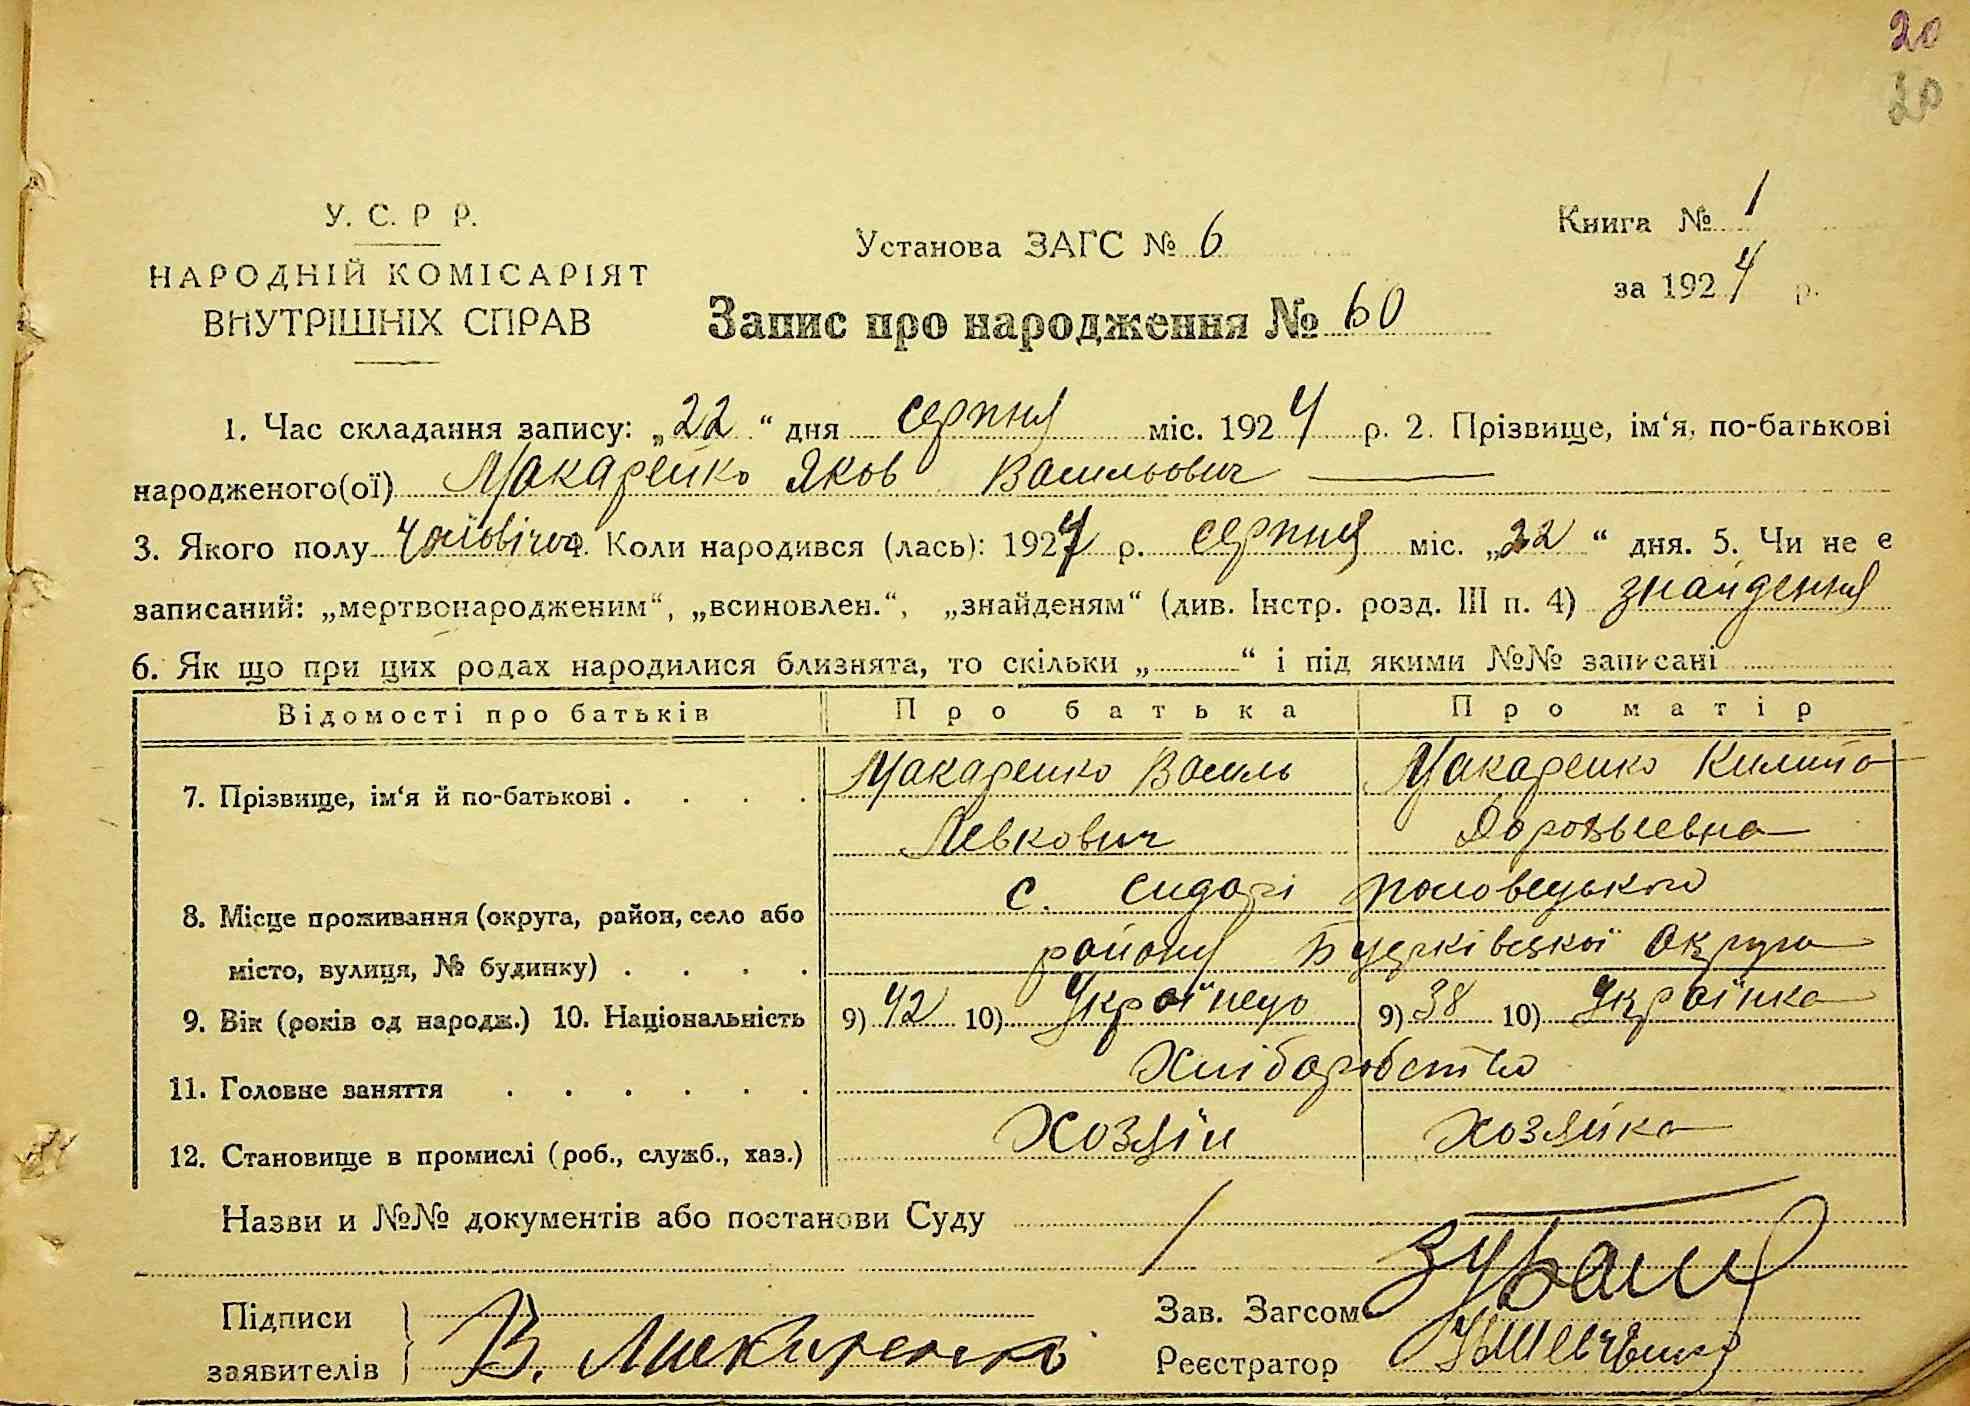 20
20
У. С. Р Р.
НАРОДНІЙ КОМІСАРІЯТ
ВНУТРІШНІХ СПРАВ
Установа ЗАГС № 6
Книга № 1
за 1924 р.
Запис про народження № 60
1. Час складання запису: „22“ дня серпня міс. 1924 р. 2. Прізвище, ім‘я, по-батькові
народженого(ої) Макаренко Яков Васильович
3. Якого полу чоловічог 4. Коли народився (лась): 1924 р. серпня міс. „22“ дня. 5. Чи не є
записаний: „мертвонародженим“, „всиновлен.“, „знайденям“ (див. Інстр. розд. III п. 4) знайдення
6. Як що при цих родах народилися близнята, то скільки „ “ і під якими №№ записані
Відомості про батьків Про батька Про матір
7. Прізвище, ім‘я й по-батькові . . . . Макаренко Василь Макаренко Килина
Левкович Дорофьевна
8. Місце проживання (округа, район, село або с. Сидорі Половецького
місто, вулиця, № будинку) . . . . району Округа
9. Вік (років од народж.) 10. Національність 9) 42 10) Українець 9) 38 10) Українка
11. Головне заняття . . . . . . Хліборобство
12. Становище в промислі (роб., служб., хаз.) Хозяін Хозяйка
Назви и №№ документів або постанови Суду
Підписи
заявителів В.
Зав. Загсом
Реєстратор